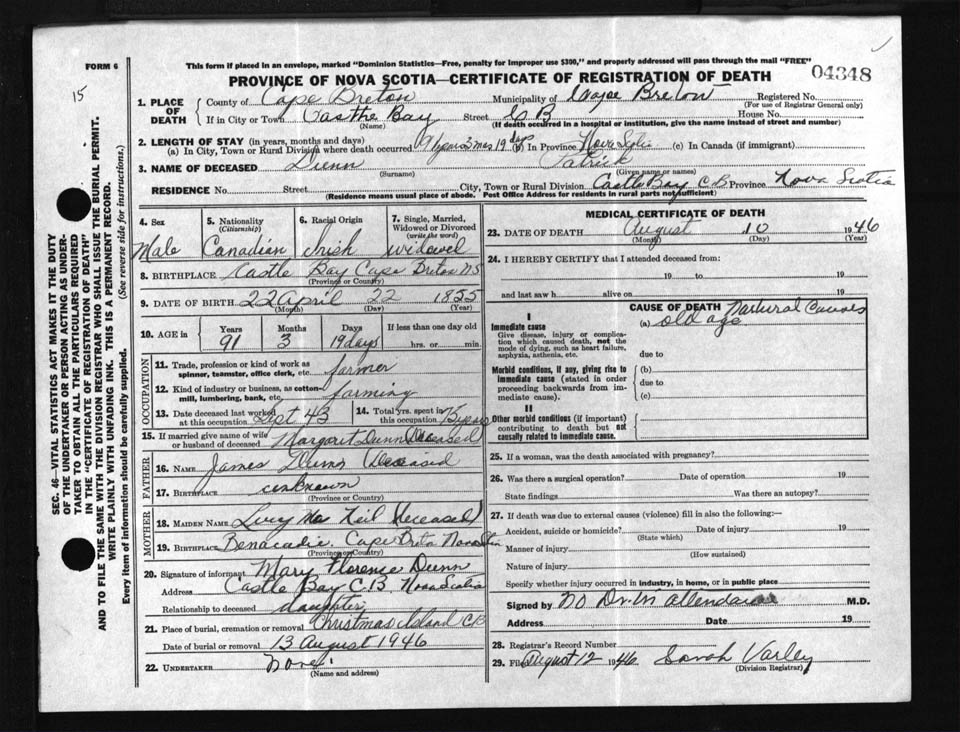 This form if placed in an envelope, marked "Dominion Statistics—Free, penalty for improper use $300," and properly addressed will pass through the mail "FREE"
FORM 6
PROVINCE OF NOVA SCOTIA—CERTIFICATE OF REGISTRATION OF DEATH
04348
15
SEC. 46—VITAL STATISTICS ACT MAKES IT THE DUTY
OF THE UNDERTAKER OR PERSON ACTING AS UNDER-
TAKER TO OBTAIN ALL THE PARTICULARS REQUIRED
IN THE "CERTIFICATE OF REGISTRATION OF DEATH"
AND TO FILE THE SAME WITH THE DIVISION REGISTRAR WHO SHALL ISSUE THE BURIAL PERMIT.
WRITE PLAINLY WITH UNFADING INK. THIS IS A PERMANENT RECORD.
Every item of information should be carefully supplied. (See reverse side for instructions.)
1. PLACE OF DEATH County of Cape Breton Municipality of Cape Breton Registered No.
(For use of Registrar General only)
If in City or Town Castle Bay Street C B House No.
(Name) (If death occurred in a hospital or institution, give the name instead of street and number)
2. LENGTH OF STAY (in years, months and days)
(a) In City, Town or Rural Division where death occurred 91 years 3 mos 19 days (b) In Province Nova Scotia (c) In Canada (if immigrant)
3. NAME OF DECEASED Dunn Patrick
(Surname) (Given name or names)
RESIDENCE No. Street City, Town or Rural Division Castle Bay C.B Province Nova Scotia
(Residence means usual place of abode. Post Office Address for residents in rural parts not sufficient)
4. Sex Male
5. Nationality (Citizenship) Canadian
6. Racial Origin Irish
7. Single, Married, Widowed or Divorced (write the word) widowed
8. BIRTHPLACE Castle Bay Cape Breton NS
(Province or Country)
9. DATE OF BIRTH 22 April 22 1855
(Month) (Day) (Year)
10. AGE in Years 91 Months 3 Days 19 days If less than one day old hrs. or min.
OCCUPATION
11. Trade, profession or kind of work as spinner, teamster, office clerk, etc. farmer
12. Kind of industry or business, as cotton-mill, lumbering, bank, etc. farming
13. Date deceased last worked at this occupation Sept 43
14. Total yrs. spent in this occupation 75 years
15. If married give name of wife or husband of deceased Margaret Dunn (Deceased)
FATHER
16. NAME James Dunn Deceased
17. BIRTHPLACE unknown
(Province or Country)
MOTHER
18. MAIDEN NAME Lucy Mc Neil (deceased)
19. BIRTHPLACE Benacadie Cape Breton Nova Scotia
(Province or Country)
20. Signature of informant Mary Florence Dunn
Address Castle Bay C.B Nova Scotia
Relationship to deceased daughter
21. Place of burial, cremation or removal Christmas Island CB
Date of burial or removal 13 August 1946
22. UNDERTAKER None
(Name and address)
MEDICAL CERTIFICATE OF DEATH
23. DATE OF DEATH August 10 1946
(Month) (Day) (Year)
24. I HEREBY CERTIFY that I attended deceased from:
19 to 19
and last saw h alive on 19
CAUSE OF DEATH Natural Causes
I
Immediate cause (a) old age
Give disease, injury or complication which caused death, not the mode of dying, such as heart failure, asphyxia, asthenia, etc.
due to
Morbid conditions, if any, giving rise to immediate cause (stated in order proceeding backwards from immediate cause).
(b)
due to
(c)
II
Other morbid conditions (if important) contributing to death but not causally related to immediate cause.
25. If a woman, was the death associated with pregnancy?
26. Was there a surgical operation? Date of operation 19
State findings Was there an autopsy?
27. If death was due to external causes (violence) fill in also the following:—
Accident, suicide or homicide? Date of injury 19
(State which)
Manner of injury
(How sustained)
Nature of injury
Specify whether injury occurred in industry, in home, or in public place
Signed by No Dr. in attendance M.D.
Address Date 19
28. Registrar's Record Number
29. Filed August 12 1946 Sarah Varley
(Division Registrar)